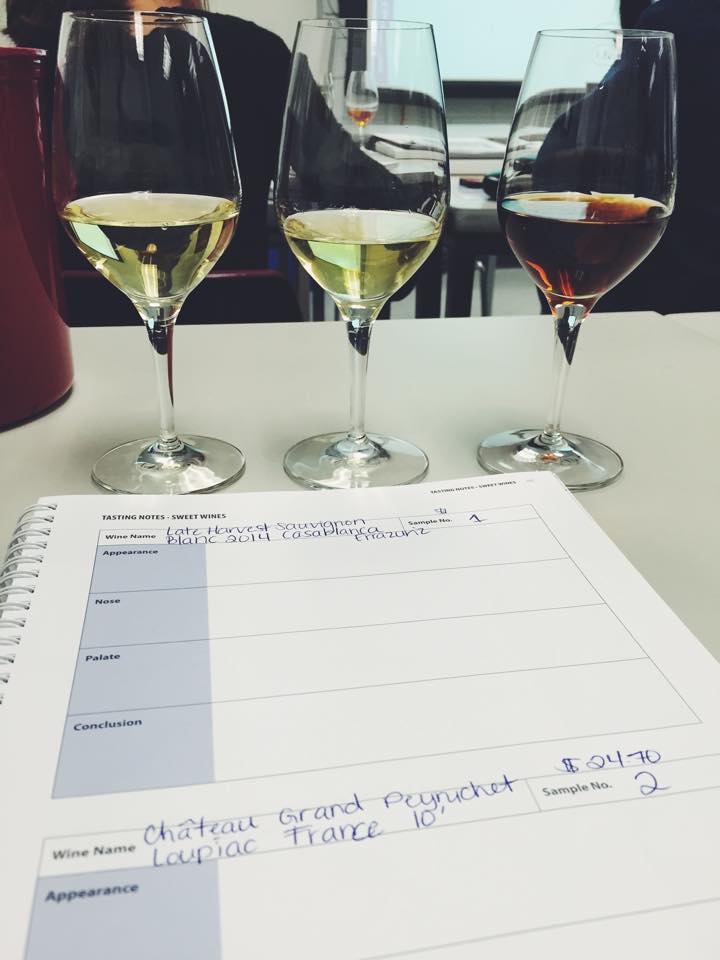 TASTING NOTES - SWEET WINES
TASTING NOTES - SWEET WINES
Wine Name Late Harvest Sauvignon
Blanc 2014 Casablanca
Errazuriz
Sample No. 1
Appearance
Nose
Palate
Conclusion
$24.70
Wine Name Château Grand Peyruchet
Loupiac France 10'
Sample No. 2
Appearance